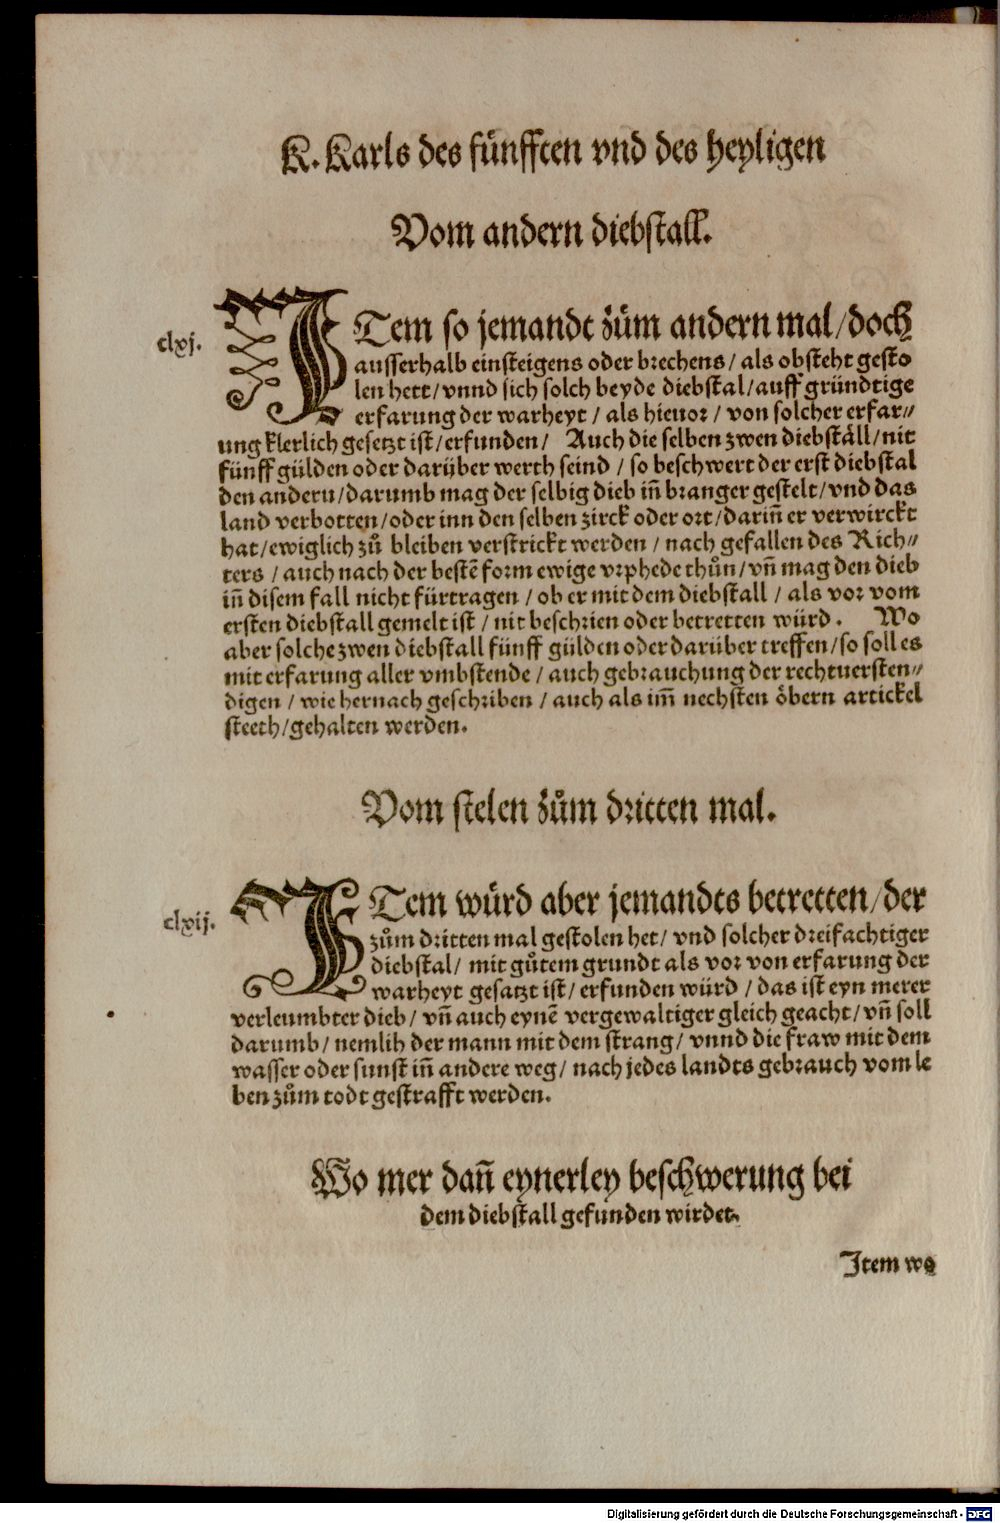 K. Karls des fünfften vnd des heyligen
Vom andern diebstall.
clxj.
ITem so jemandt zům andern mal/doch
ausserhalb einsteigens oder brechens/ als obsteht gesto
len hett/ vnnd sich solch beyde diebstal/auff gründtige
erfarung der warheyt / als hieuor / von solcher erfar⸗
ung klerlich gesetzt ist/erfunden/ Auch die selben zwen diebställ/nit
fünff gülden oder darüber werth seind / so beschwert der erst diebstal
den andern/darumb mag der selbig dieb iñ branger gestelt/vnd das
land verbotten/oder inn den selben zirck oder ort/dariñ er verwirckt
hat/ewiglich zů bleiben verstrickt werden / nach gefallen des Rich⸗
ters / auch nach der bestē form ewige vrphede thůn/vñ mag den dieb
iñ disem fall nicht fürtragen / ob er mit dem diebstall / als vor vom
ersten diebstall gemelt ist / nit beschrien oder betretten würd. Wo
aber solche zwen diebstall fünff gülden oder darüber treffen/so soll es
mit erfarung aller vmbstende / auch gebrauchung der rechtuersten⸗
digen / wie hernach geschriben / auch als im̃ nechsten öbern artickel
steeth/gehalten werden.
Vom stelen zům dritten mal.
clxij.
ITem würd aber jemandts betretten/der
zům dritten mal gestolen het/ vnd solcher dreifachtiger
diebstal/ mit gůtem grundt als vor von erfarung der
warheyt gesatzt ist/ erfunden würd / das ist eyn merer
verleumbter dieb/ vñ auch eynē vergewaltiger gleich geacht/ vñ soll
darumb/ nemlih der mann mit dem strang/ vnnd die fraw mit dem
wasser oder sunst iñ andere weg/ nach jedes landts gebrauch vom le
ben zům todt gestrafft werden.
Wo mer dañ eynerley beschwerung bei
dem diebstall gefunden wirdet.
Item wo
Digitalisierung gefördert durch die Deutsche Forschungsgemeinschaft - DFG